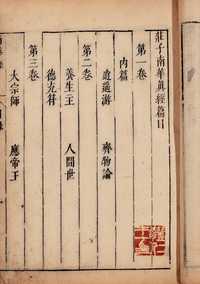 莊子南華真經篇目
第一卷
内篇
逍遥游 齊物論
第二卷
養生主 人間世
德充符
第三卷
大宗師 應帝王